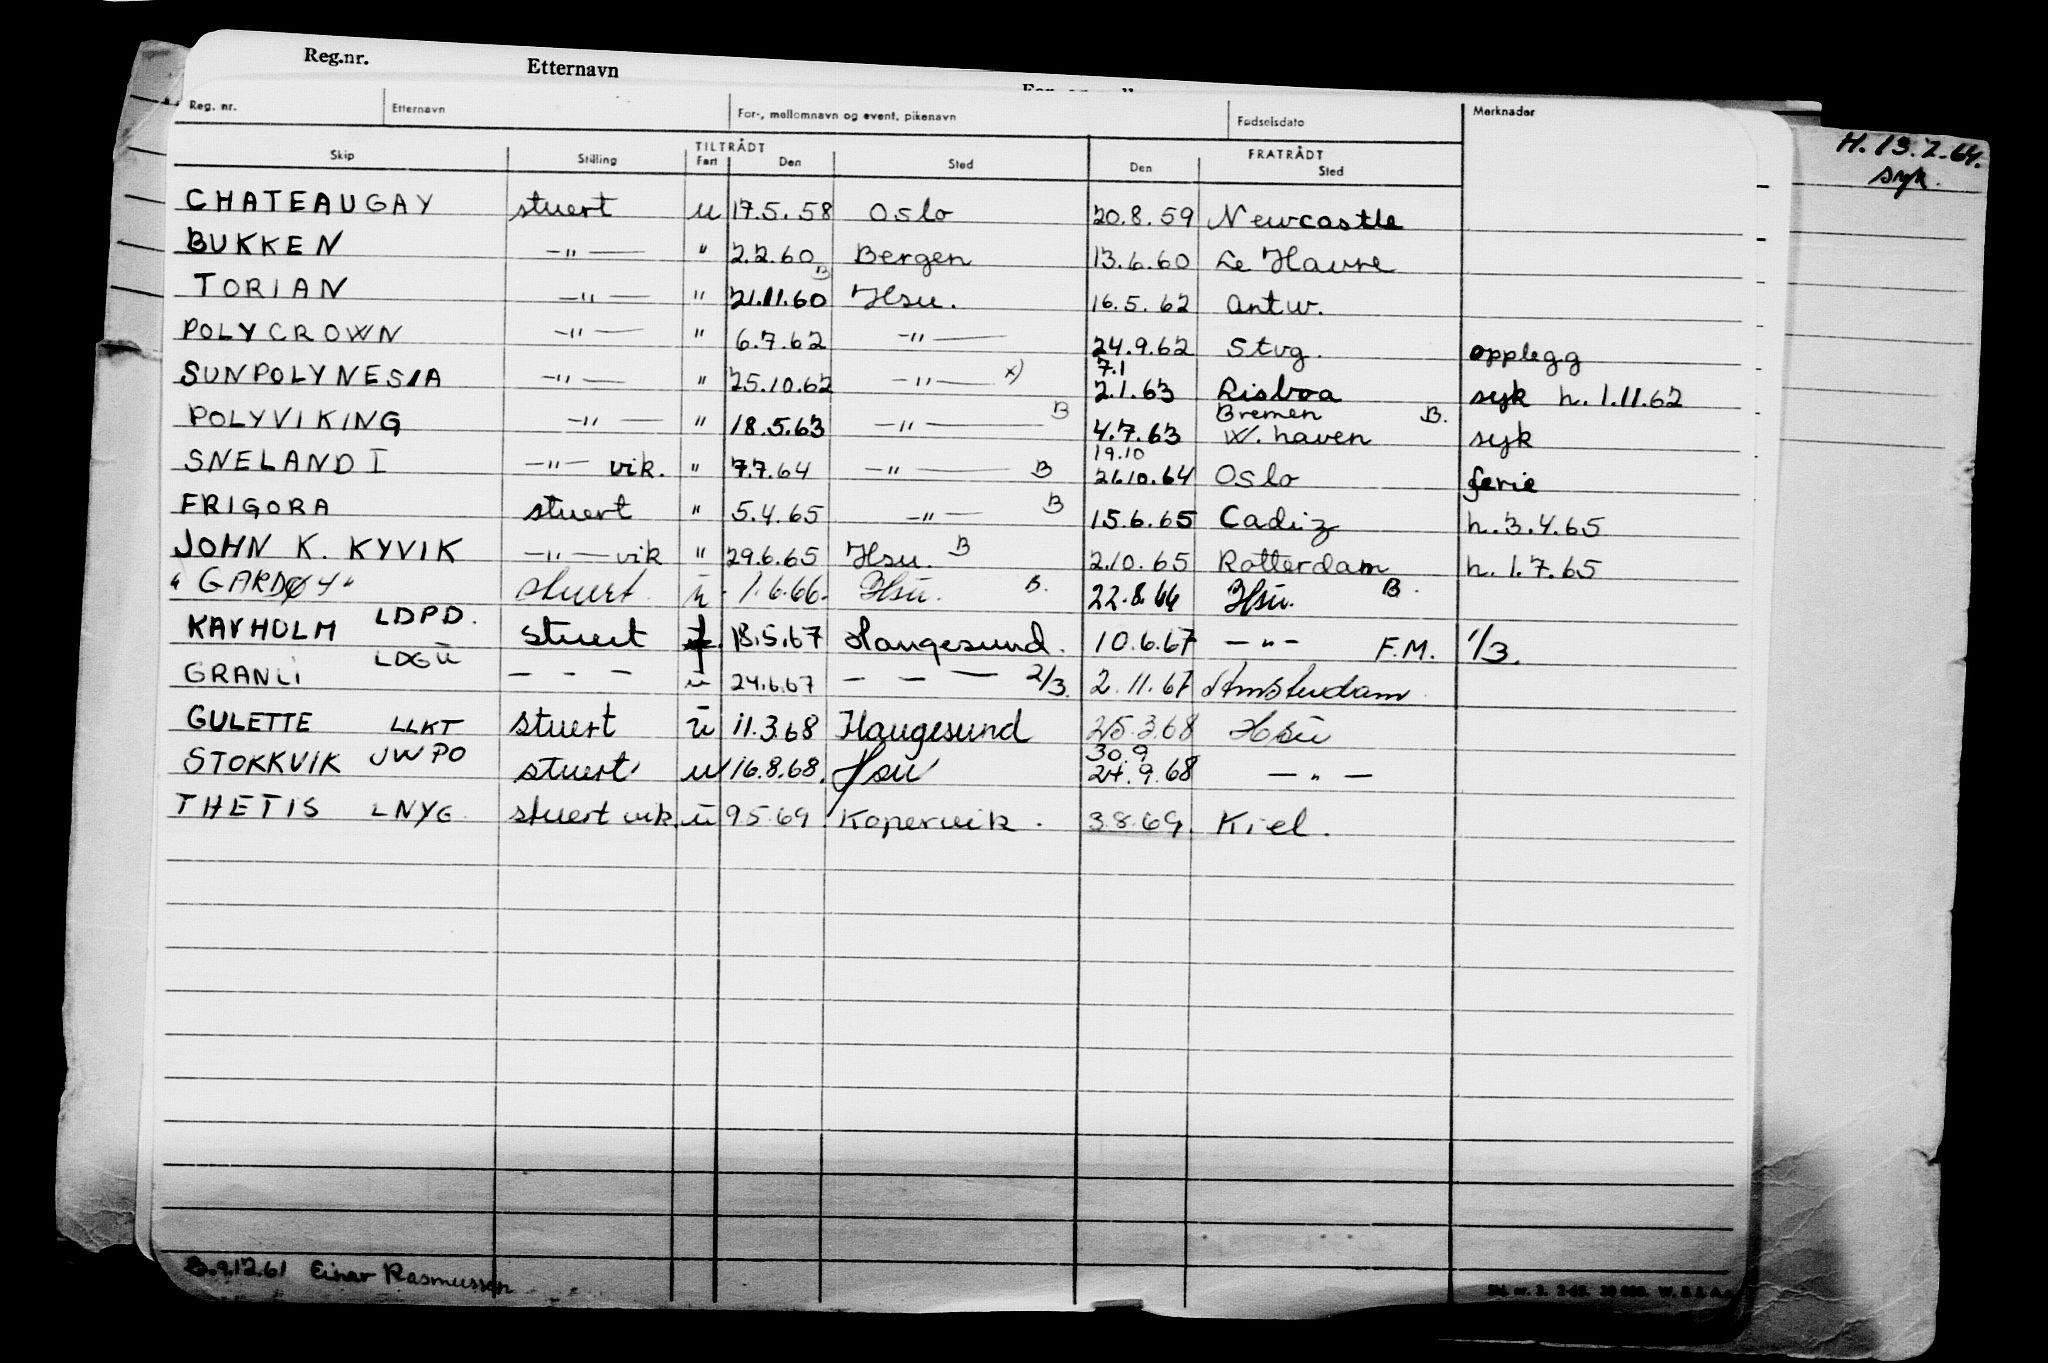 Reg.nr. Etternavn
Reg. nr. Etternavn For-, mellomnavn og event. pikenavn Fødselsdato Merknader
H. 13.2.64.
syk.
TILTRÅDT FRATRÅDT
Skip Stilling Fart Den Sted Den Sted
CHATEAUGAY stuert u 17.5.58 Oslo 20.8.59 Newcastle
BUKKEN -"- " 2.2.60 Bergen 13.6.60 Le Havre
B
TORIAN -"- " 21.11.60 Hsu. 16.5.62 Antw.
POLYCROWN -"- " 6.7.62 -"- 24.9.62 Stvg. opplegg
7.1
SUNPOLYNESIA -"- " 25.10.62 -"- x) 2.1.63 Lisboa syk h. 1.11.62
Bremen B.
POLYVIKING -"- " 18.5.63 -"- B 4.7.63 W. haven syk
19.10
SNELAND I -"- vik. " 7.7.64 -"- B 26.10.64 Oslo ferie
FRIGORA stuert " 5.4.65 -"- B 15.6.65 Cadiz h. 3.4.65
JOHN K. KYVIK -"- vik " 29.6.65 Hsu. B 2.10.65 Rotterdam h. 1.7.65
"GARDØY" stuert u 1.6.66. Hsu. B. 22.8.66 Hsu. B.
KAVHOLM LDPD. stuert 18.5.67 Haugesund. 10.6.67 -"- F.M. 1/3.
GRANLI LDGU - - - u 24.6.67 - - - 2/3. 2.11.67 Amsterdam
GULETTE LLKT stuert u 11.3.68 Haugesund 25.3.68 Hsu
30.9
STOKKVIK JWPO stuert u 16.8.68. Hsu 24.9.68 -"-
THETIS LNYG stuert vik. u 9.5.69 Kopervik. 3.8.69. Kiel.
B. 9.12.61 Einar Rasmussen